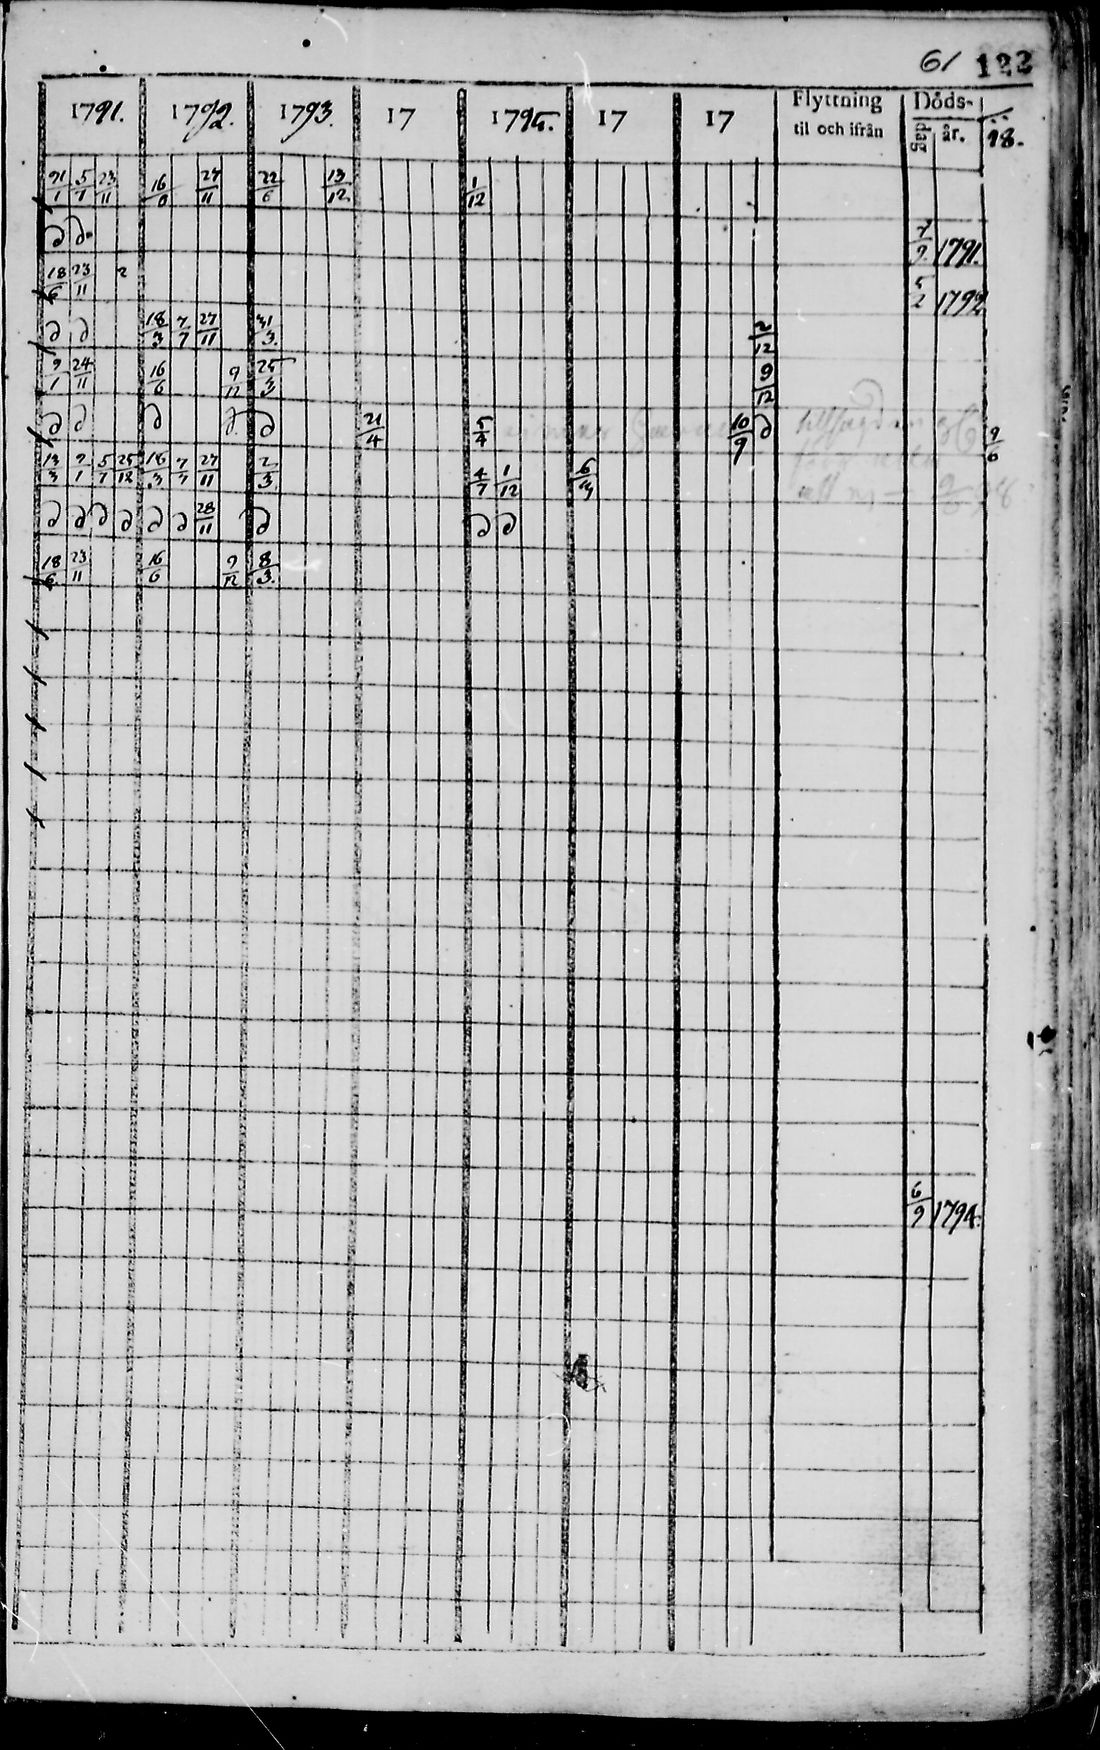 61 122
1791. 1792. 1793. 17 1795. 17 17 Flyttning til och ifrån Döds- dag år. 98.
5/7 23/11 27/11 22/6 13/12 1/12
∂ ∂ 7/9 1791.
18/6 23/11 2 5/2 1792
∂ ∂ 18/3 7/7 27/11 31/3 2/12
9/1 24/11 16/6 9/12 25/3 9/12
∂ ∂ ∂ ∂ ∂ 21/4 5/4 10/9 ∂ 9/6
13/3 9/1 5/7 25/12 18/3 7/7 27/11 2/3 4/7 1/12
∂ ∂ ∂ ∂ ∂ ∂ 28/11 ∂ ∂ ∂
18/6 23/11 16/6 9/12 8/3
6/9 1794.